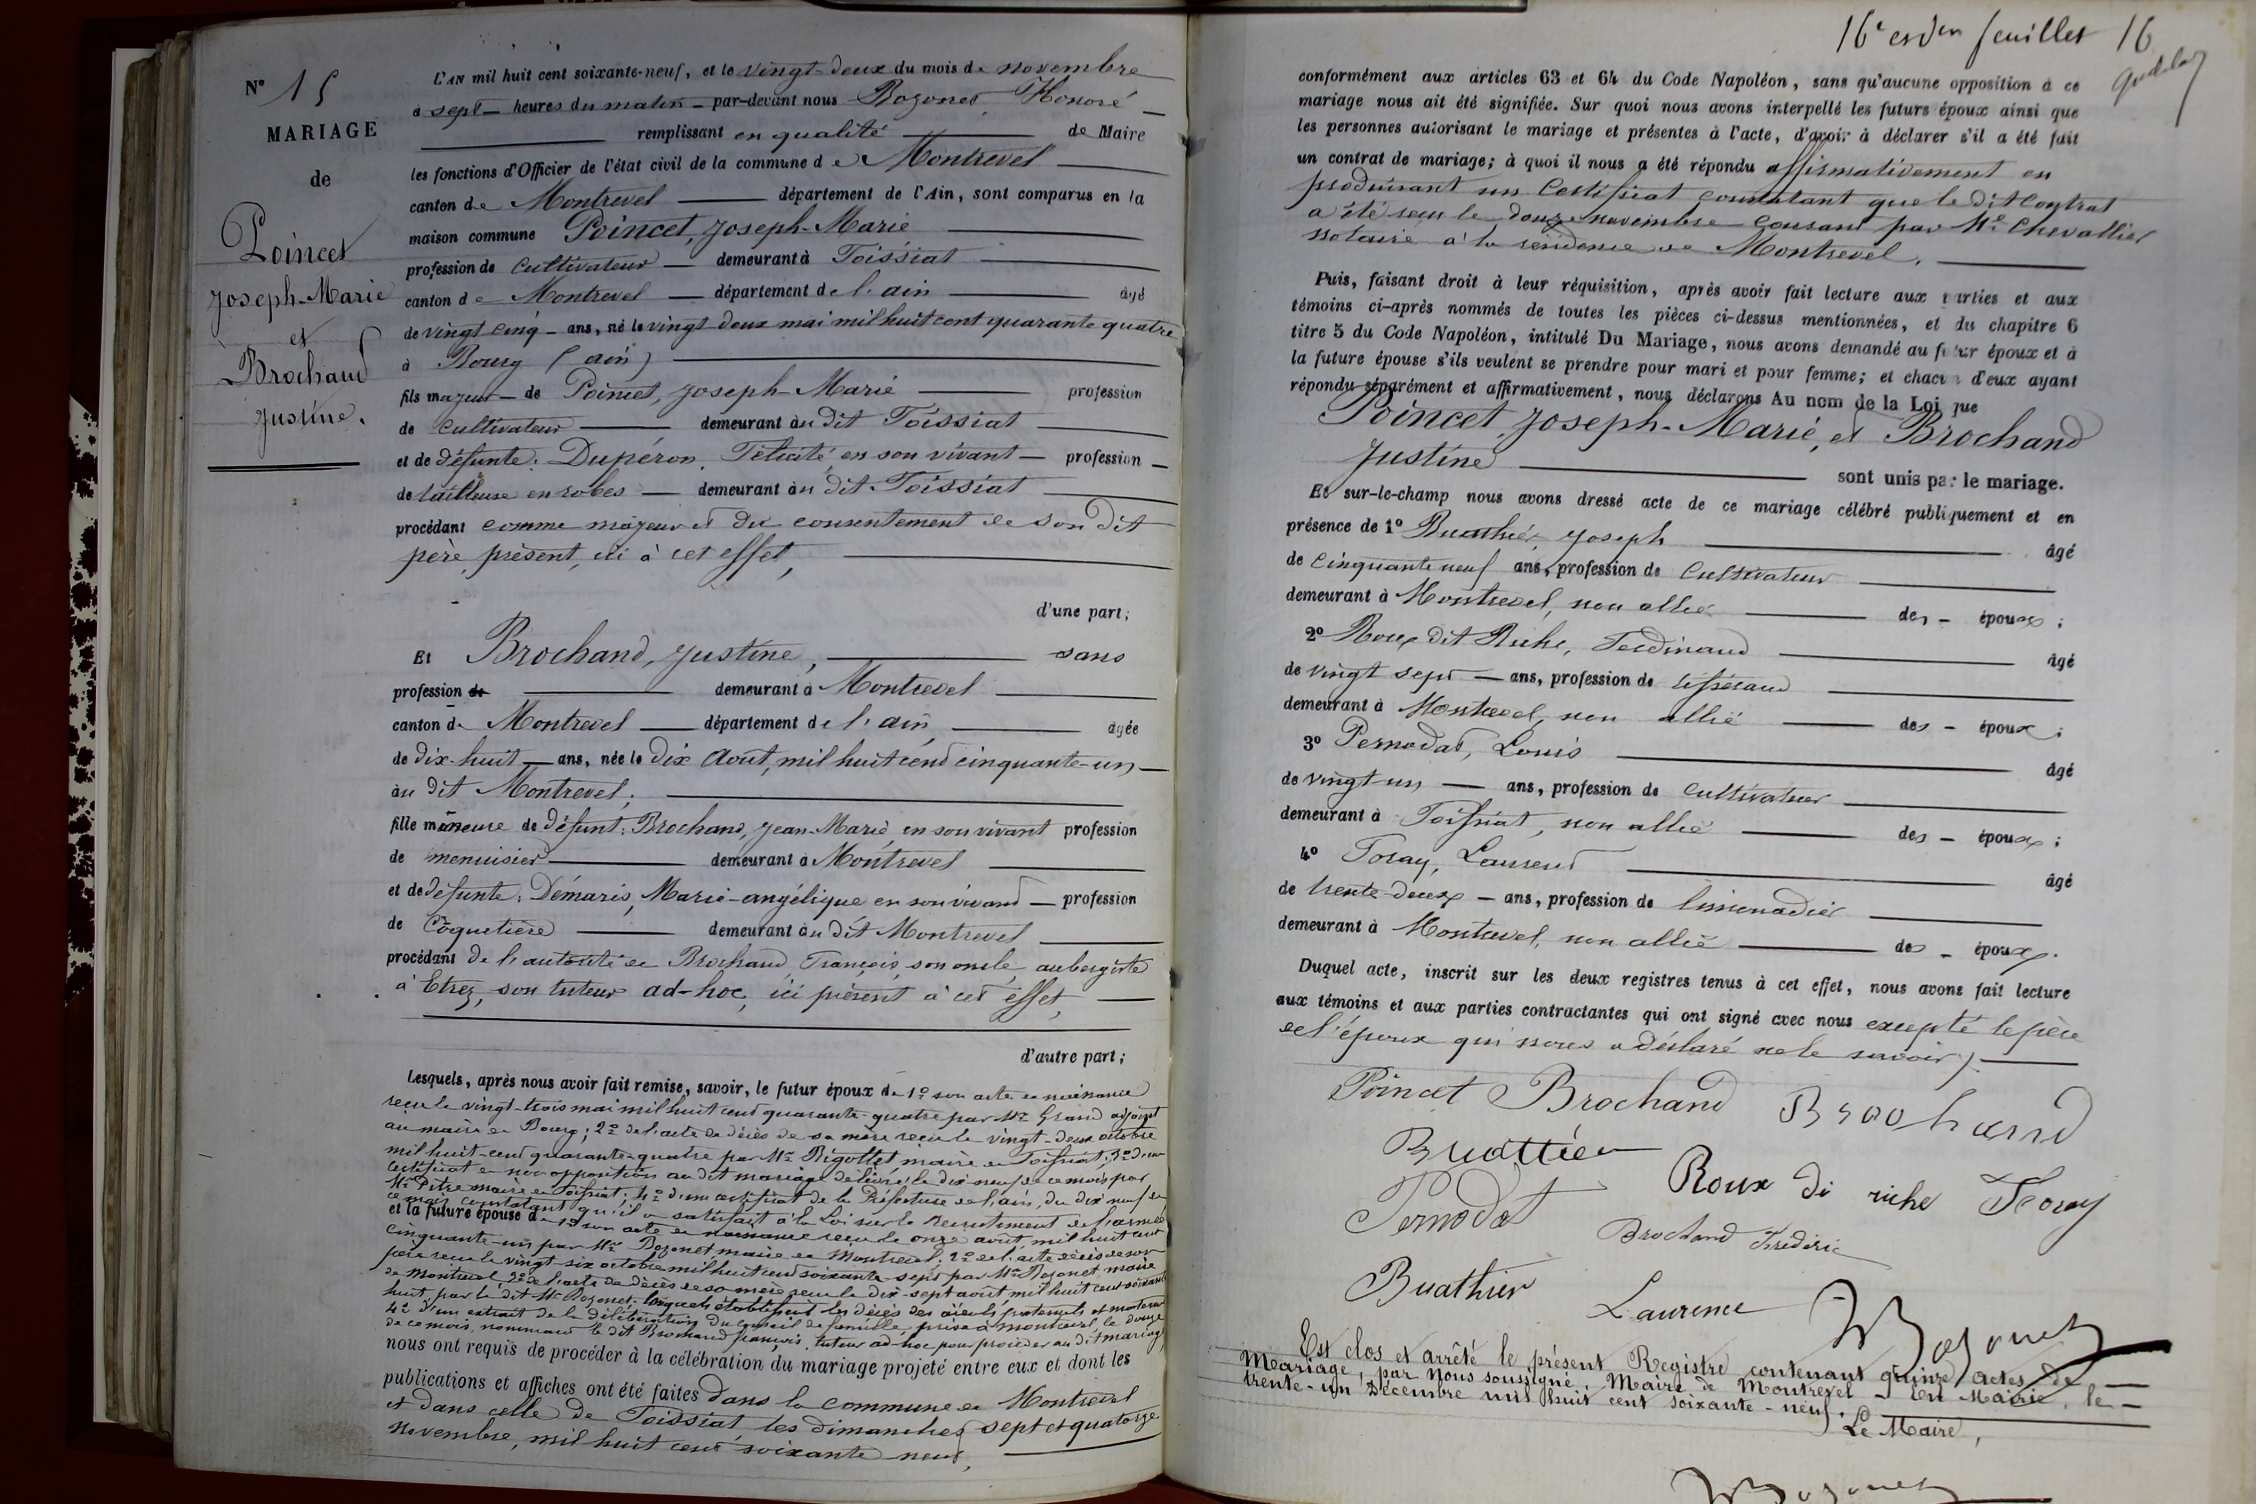 N° 15
MARIAGE
de
Poincet
Joseph-Marie
et
Brochand
Justine.
L'AN mil huit cent soixante-neuf, et le vingt-deux du mois de novembre
à sept heures du matin par-devant nous Bozonet, Honoré
remplissant en qualité de Maire
les fonctions d'Officier de l'état civil de la commune de Montrevel
canton de Montrevel département de l'Ain, sont comparus en la
maison commune Poincet, Joseph-Marie
profession de cultivateur demeurant à Foissiat
canton de Montrevel département de l'ain âgé
de vingt cinq ans, né le vingt deux mai mil huit cent quarante quatre
à Bourg (ain)
fils majeur de Poincet, Joseph-Marie profession
de cultivateur demeurant au dit Foissiat
et de défunte: Dupéron, Félicité, en son vivant profession
de tailleuse en robes demeurant au dit Foissiat
procédant comme majeur et du consentement de son dit
père, présent, ici à cet effet,
d'une part;
Et Brochand, Justine, sans
profession de demeurant à Montrevel
canton de Montrevel département de l'ain, âgée
de dix-huit ans, née le dix Août, mil huit cent cinquante-un
au dit Montrevel;
fille mineure de défunt: Brochand, Jean-Marie en son vivant profession
de menuisier demeurant à Montrevel
et de défunte: Démaris, Marie-angélique en son vivant profession
de Coquetière demeurant au dit Montrevel
procédant de l'autorité de Brochand François, son oncle aubergiste
à Etrez, son tuteur ad-hoc, ici présent à cet effet,
d'autre part;
Lesquels, après nous avoir fait remise, savoir, le futur époux de 1° son acte de naissance
reçu le vingt-trois mai mil huit cent quarante-quatre par Mr Grand adjoint
au maire de Bourg; 2° de l'acte de décès de sa mère reçu le vingt-deux octobre
mil huit-cent quarante-quatre par Mr Bigottet maire de Foissiat; 3° d'un
certificat de non opposition au dit mariage délivré le dix neuf de ce mois par
Mr Pitre maire de Foissiat; 4° d'un certificat de la Préfecture de l'ain, du dix neuf de
ce mois constatant qu'il a satisfait à la Loi sur le Recrutement de l'armée
et la future épouse de 1° son acte de naissance reçu le onze août mil huit cent
cinquante-un par Mr Bozonet, maire de Montrevel; 2° de l'acte décès de son
père reçu le vingt-six octobre mil huit cent soixante-sept par Mr Bozonet maire
de Montrevel, 3° de l'acte de décès de sa mère reçu le dix-sept août mil huit cent soixante
huit, par le dit Mr Bozonet, lesquels établissent les décès des aïeuls paternels et maternels
4° d'un extrait de la délibération du conseil de famille, prise à Montrevel le douze
de ce mois, nommant le dit Brochand françois, tuteur ad-hoc pour procéder au dit mariage,
nous ont requis de procéder à la célébration du mariage projeté entre eux et dont les
publications et affiches ont été faites dans la commune de Montrevel
et dans celle de Foissiat, les dimanches sept et quatorze
novembre, mil huit cent soixante neuf,
feuillet 16
conformément aux articles 63 et 64 du Code Napoléon, sans qu'aucune opposition à ce
mariage nous ait été signifiée. Sur quoi nous avons interpellé les futurs époux ainsi que
les personnes autorisant le mariage et présentes à l'acte, d'avoir à déclarer s'il a été fait
un contrat de mariage; à quoi il nous a été répondu affirmativement en
produisant un Certificat constatant que le dit contrat
a été reçu le douze novembre courant par Me Chevallier
notaire à la résidence de Montrevel.
Puis, faisant droit à leur réquisition, après avoir fait lecture aux parties et aux
témoins ci-après nommés de toutes les pièces ci-dessus mentionnées, et du chapitre 6
titre 5 du Code Napoléon, intitulé Du Mariage, nous avons demandé au futur époux et à
la future épouse s'ils veulent se prendre pour mari et pour femme; et chacun d'eux ayant
répondu séparément et affirmativement, nous déclarons Au nom de la Loi que
Poincet, Joseph-Marie, et Brochand
Justine sont unis par le mariage.
Et sur-le-champ nous avons dressé acte de ce mariage célébré publiquement et en
présence de 1° Buathier Joseph âgé
de cinquante neuf ans, profession de Cultivateur
demeurant à Montrevel, non allié des époux;
2° Roux dit Riche, Ferdinand âgé
de vingt sept ans, profession de tisserand
demeurant à Montrevel, non allié des époux;
3° Pernodat, Louis âgé
de vingt-un ans, profession de cultivateur
demeurant à Foissiat, non allié des époux;
4° Foray, Laurent âgé
de trente-deux ans, profession de limonadier
demeurant à Montrevel, non allié des époux.
Duquel acte, inscrit sur les deux registres tenus à cet effet, nous avons fait lecture
aux témoins et aux parties contractantes qui ont signé avec nous excepté le père
de l'époux qui nous a déclaré ne le savoir.
Poincet Brochand Broohand
Buattier Roux di riche Foray
Pernodat Brochand Frédéric
Buathier Laurence Bozonet
Est clos et arrêté le présent Registre contenant quinze actes de
Mariage, par Nous soussigné, Maire de Montrevel En Mairie, le
trente-un Décembre mil huit cent soixante-neuf.
Le Maire,
Bozonet